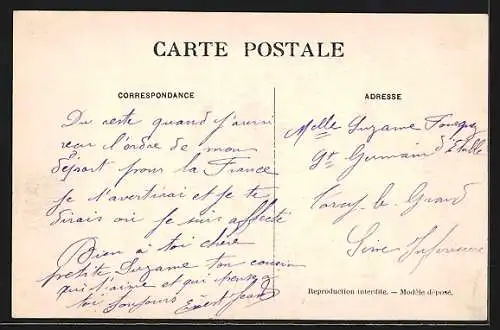 CARTE POSTALE
CORRESPONDANCE
ADRESSE
Du reste quand j'aurai
reçu l'ordre de mon
départ pour la France
je t'avertirai et je te
dirais où je suis affecté
Bien à toi chère
petite Suzanne ton cousin
qui t'aime et qui pense à
toi toujours
Melle Suzanne
St Germain d'Etable
Torcy-le-Grand
Seine Inférieure
Reproduction interdite. — Modèle déposé.